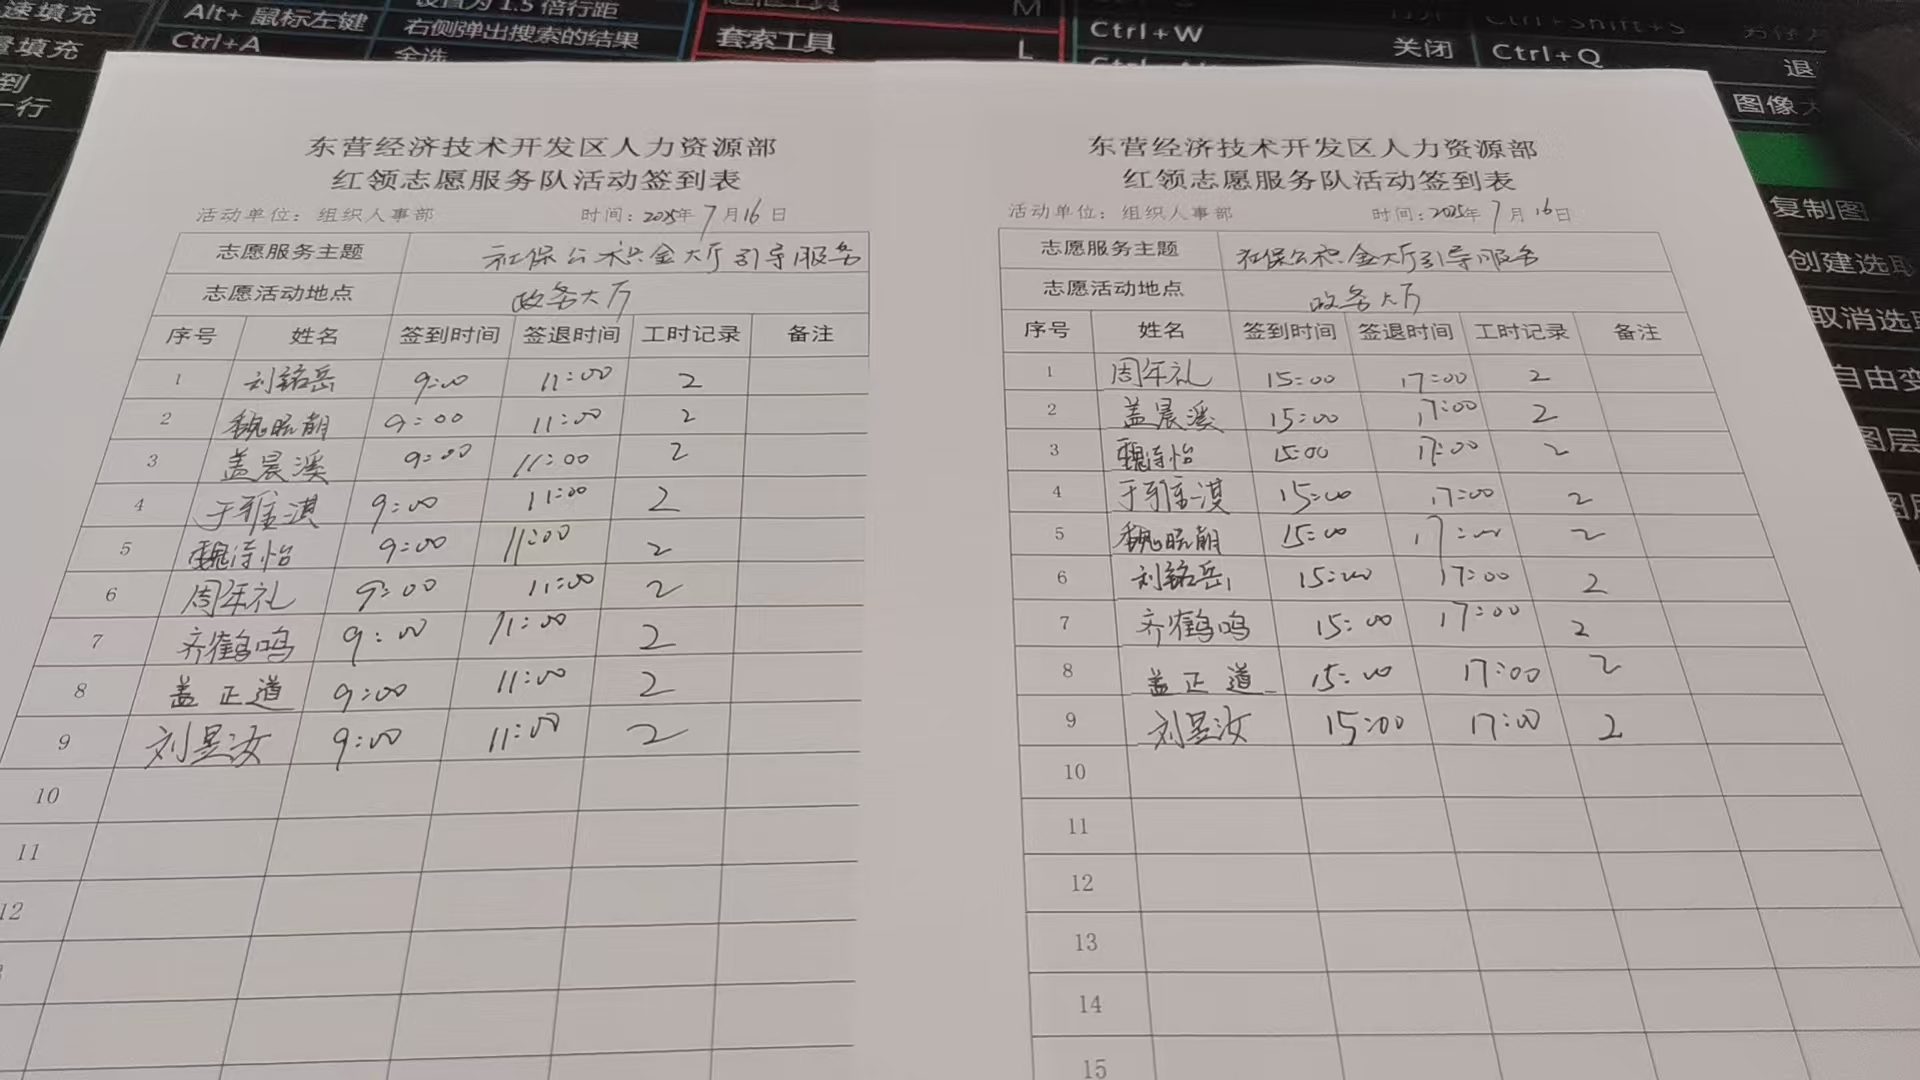 速填充
Alt+ 鼠标左键
设置为 1.5 倍行距
套索工具
M
L
Ctrl+W
关闭
Ctrl+Shift+S
量填充
Ctrl+A
右侧弹出搜索的结果
全选
Ctrl+Q
退
到
一行
图像大
复制图
创建选
取消选
自由变
图层
图层
东营经济技术开发区人力资源部
红领志愿服务队活动签到表
活动单位：组织人事部 时间：2025年7月16日
志愿服务主题 社保公积金大厅引导服务
志愿活动地点 政务大厅
序号 姓名 签到时间 签退时间 工时记录 备注
1 刘铭岳 9:00 11:00 2
2 魏晓朝 9:00 11:00 2
3 盖晨溪 9:00 11:00 2
4 于雅淇 9:00 11:00 2
5 魏诗怡 9:00 11:00 2
6 周年礼 9:00 11:00 2
7 齐鹤鸣 9:00 11:00 2
8 盖正道 9:00 11:00 2
9 刘昱汝 9:00 11:00 2
10
11
12
东营经济技术开发区人力资源部
红领志愿服务队活动签到表
活动单位：组织人事部 时间：2025年7月16日
志愿服务主题 社保公积金大厅引导服务
志愿活动地点 政务大厅
序号 姓名 签到时间 签退时间 工时记录 备注
1 周年礼 15:00 17:00 2
2 盖晨溪 15:00 17:00 2
3 魏诗怡 15:00 17:00 2
4 于雅淇 15:00 17:00 2
5 魏晓朝 15:00 17:00 2
6 刘铭岳 15:00 17:00 2
7 齐鹤鸣 15:00 17:00 2
8 盖正道 15:00 17:00 2
9 刘昱汝 15:00 17:00 2
10
11
12
13
14
15